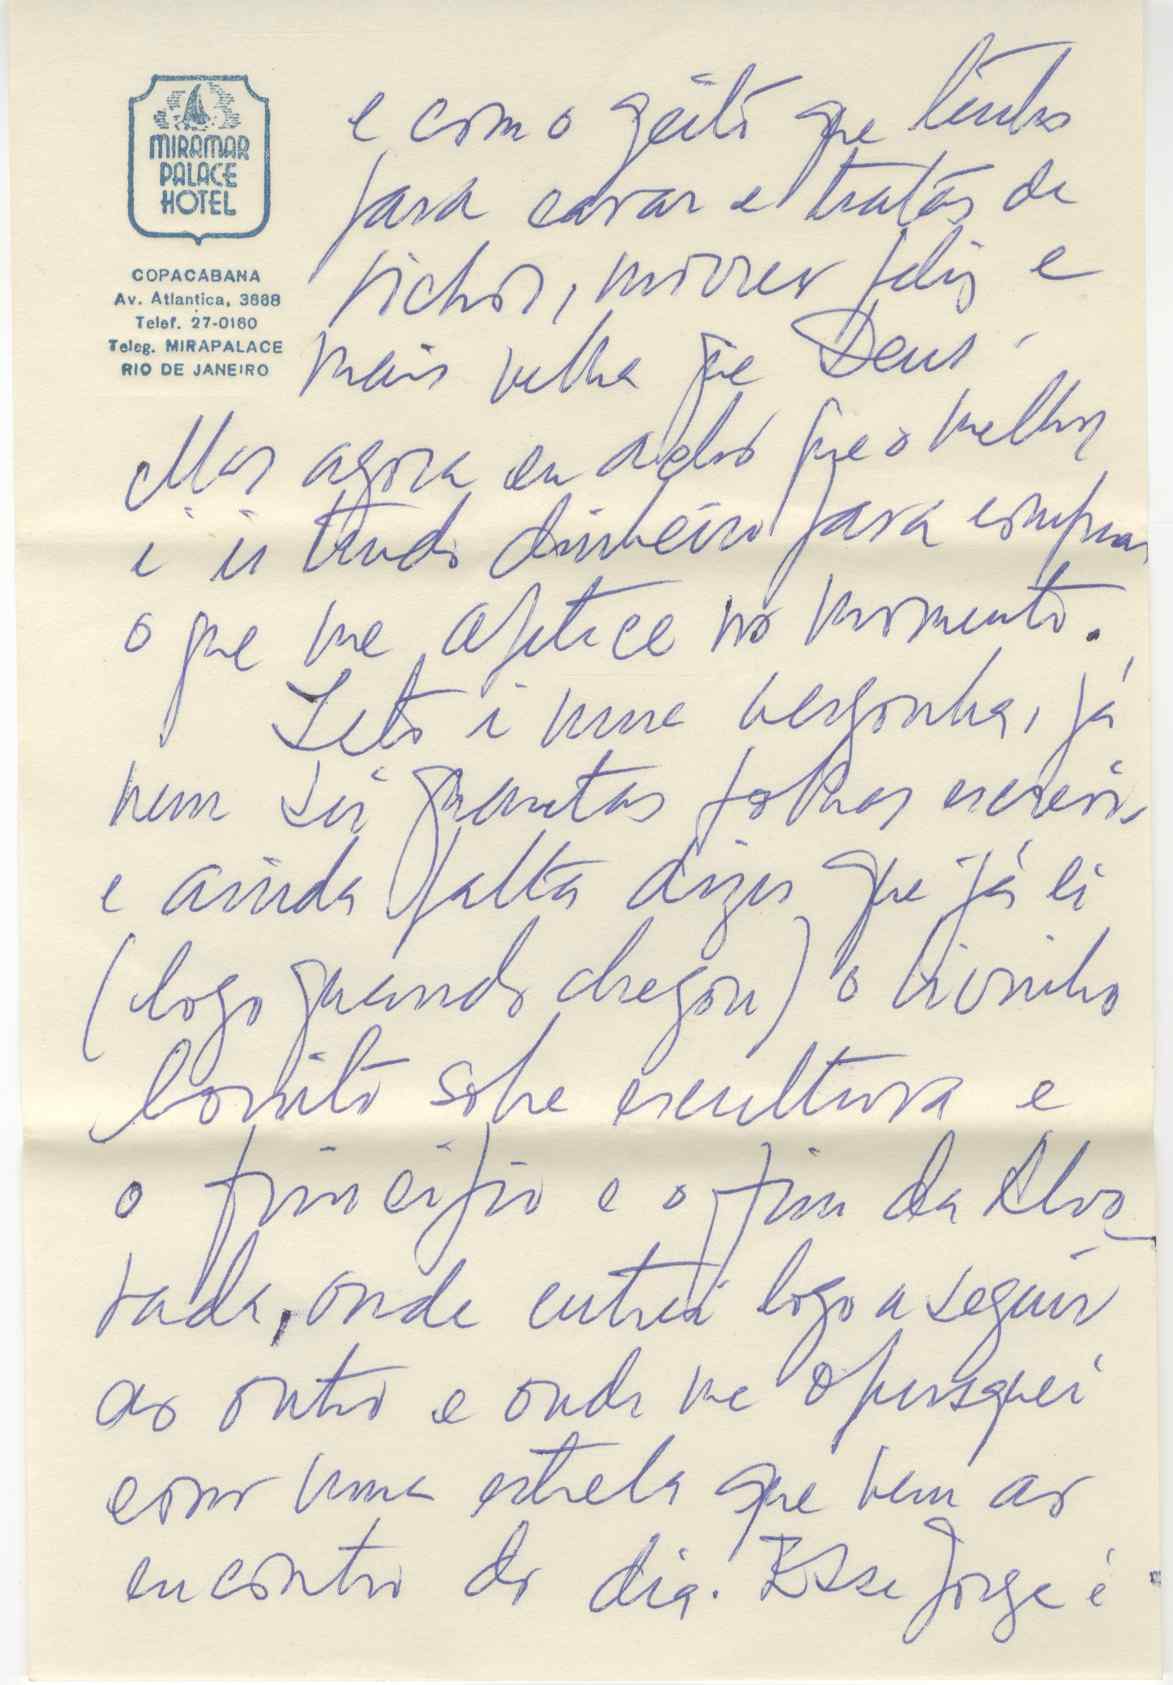 MIRAMAR
PALACE
HOTEL
COPACABANA
Av. Atlantica, 3688
Telef. 27-0160
Teleg. MIRAPALACE
RIO DE JANEIRO
e com o geito que tenho
para cavar e tratar de
bichos, morrer feliz e
mais velha que Deus.
Mas agora eu acho que o melhor
é ir tendo dinheiro para comprar
o que me apetece no momento.
Isto é uma vergonha, já
nem sei quantas folhas escrevi
e ainda falta dizer que já li
(logo quando chegou) o livrinho
bonito sobre escultura e
o principio e o fim da Alvo
rada, onde entrei logo a seguir
ao outro e onde me
como uma estrela que vem ao
encontro do dia. Esse Jorge é